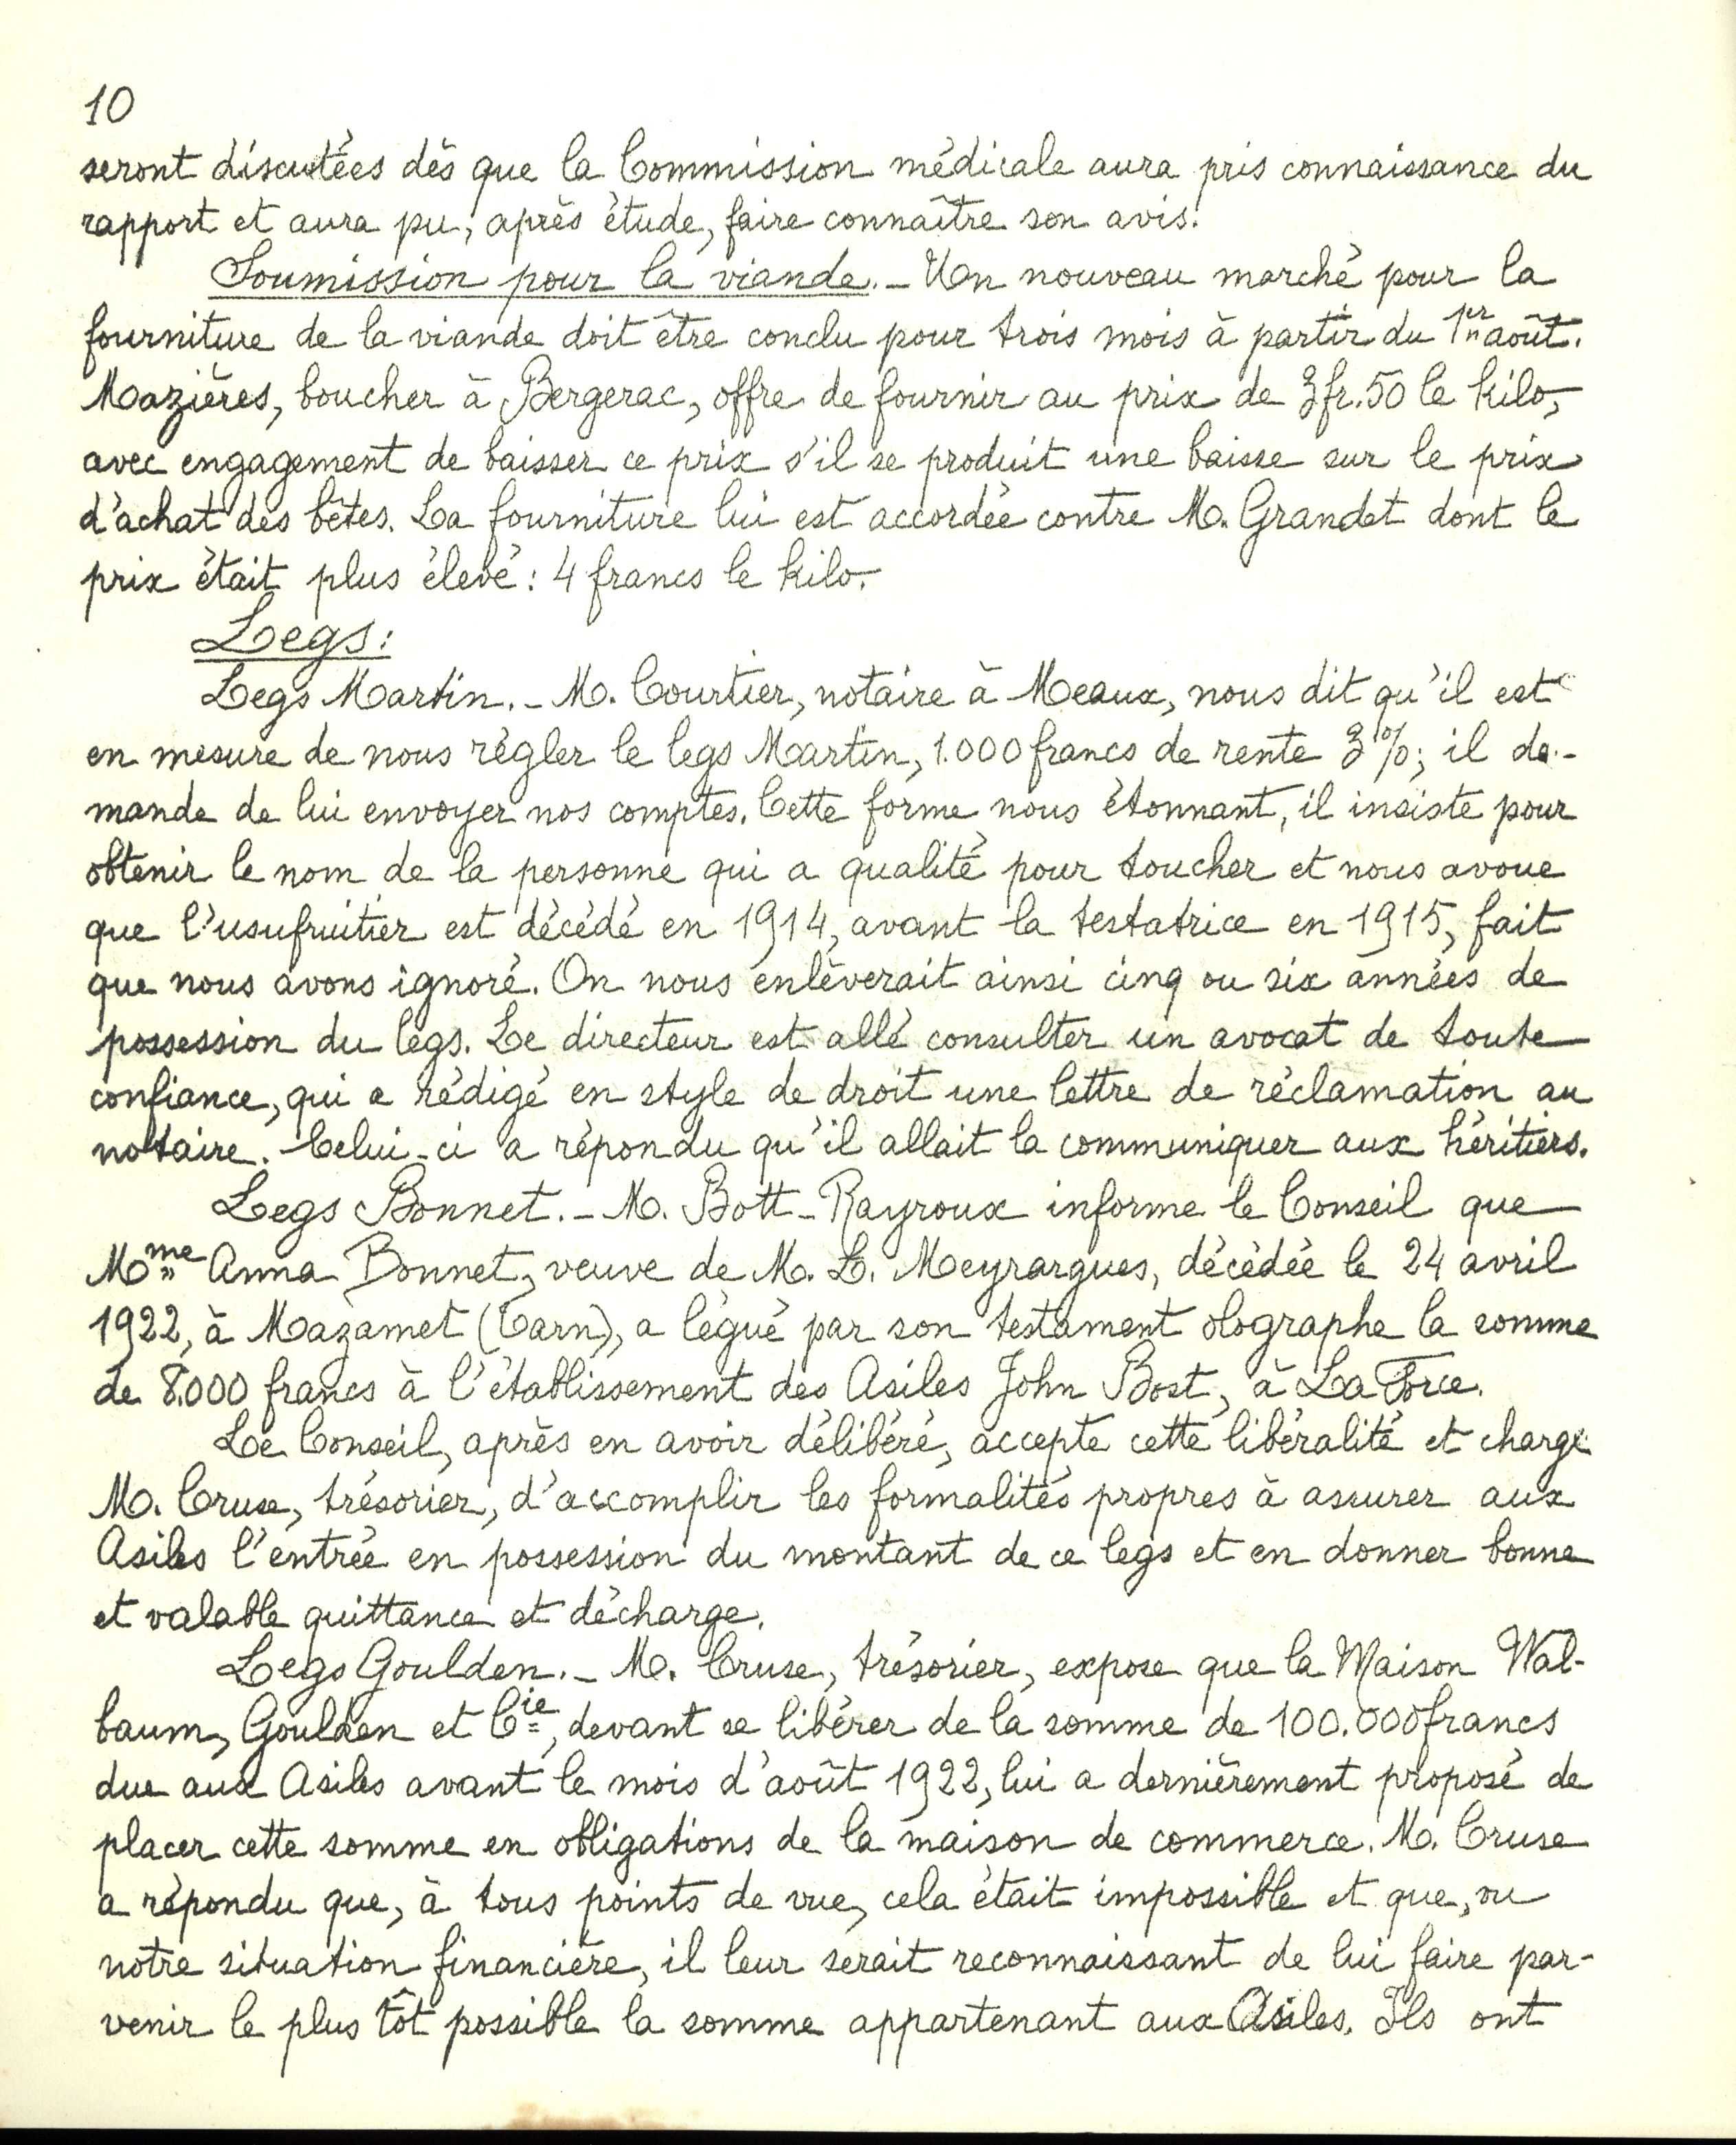 10
seront discutées dès que la Commission médicale aura pris connaissance du
rapport et aura pu, après étude, faire connaître son avis.
Soumission pour la viande. _ Un nouveau marché pour la
fourniture de la viande doit être conclu pour trois mois à partir du 1er août.
Mazières, boucher à Bergerac, offre de fournir au prix de 3fr.50 le kilo,
avec engagement de baisser ce prix s'il se produit une baisse sur le prix
d'achat des bêtes. La fourniture lui est accordée contre M. Grandet dont le
prix était plus élevé : 4 francs le kilo.
Legs :
Legs Martin. _ M. Courtier, notaire à Meaux, nous dit qu'il est
en mesure de nous régler le legs Martin, 1.000 francs de rente 3 %; il de-
mande de lui envoyer nos comptes. Cette forme nous étonnant, il insiste pour
obtenir le nom de la personne qui a qualité pour toucher et nous avoue
que l'usufruitier est décédé en 1914, avant la testatrice en 1915, fait
que nous avons ignoré. On nous enlèverait ainsi cinq ou six années de
possession du legs. Le directeur est allé consulter un avocat de toute
confiance, qui a rédigé en style de droit une lettre de réclamation au
notaire. Celui-ci a répondu qu'il allait la communiquer aux héritiers.
Legs Bonnet. _ M. Bott-Rayroux informe le Conseil que
Mme Anna Bonnet, veuve de M. L. Meyrargues, décédée le 24 avril
1922, à Mazamet (Tarn), a légué par son testament olographe la somme
de 8.000 francs à l'établissement des Asiles John Bost, à La Force.
Le Conseil, après en avoir délibéré, accepte cette libéralité et charge
M. Cruse, trésorier, d'accomplir les formalités propres à assurer aux
Asiles l'entrée en possession du montant de ce legs et en donner bonne
et valable quittance et décharge.
Legs Goulden. _ M. Cruse, trésorier, expose que la Maison Wal-
baum, Goulden et Cie, devant se libérer de la somme de 100.000 francs
due aux Asiles avant le mois d'août 1922, lui a dernièrement proposé de
placer cette somme en obligations de la maison de commerce. M. Cruse
a répondu que, à tous points de vue, cela était impossible et que, vu
notre situation financière, il leur serait reconnaissant de lui faire par-
venir le plus tôt possible la somme appartenant aux Asiles. Ils ont